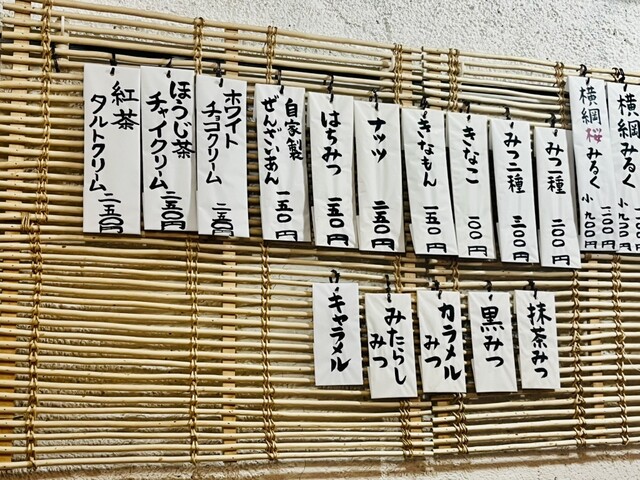 横綱みるく
横綱桜みるく
小九〇〇円
みつ二種 二〇〇円
みつ三種 三〇〇円
きなこ 一〇〇円
きなもん 一五〇円
ナッツ 二五〇円
はちみつ 一五〇円
自家製
ぜんざいあん 一五〇円
ホワイト
チョコクリーム 二五〇円
ほうじ茶
チャイクリーム 二五〇円
紅茶
タルトクリーム 二五〇円
抹茶みつ
黒みつ
カラメル
みつ
みたらし
みつ
キャラメル